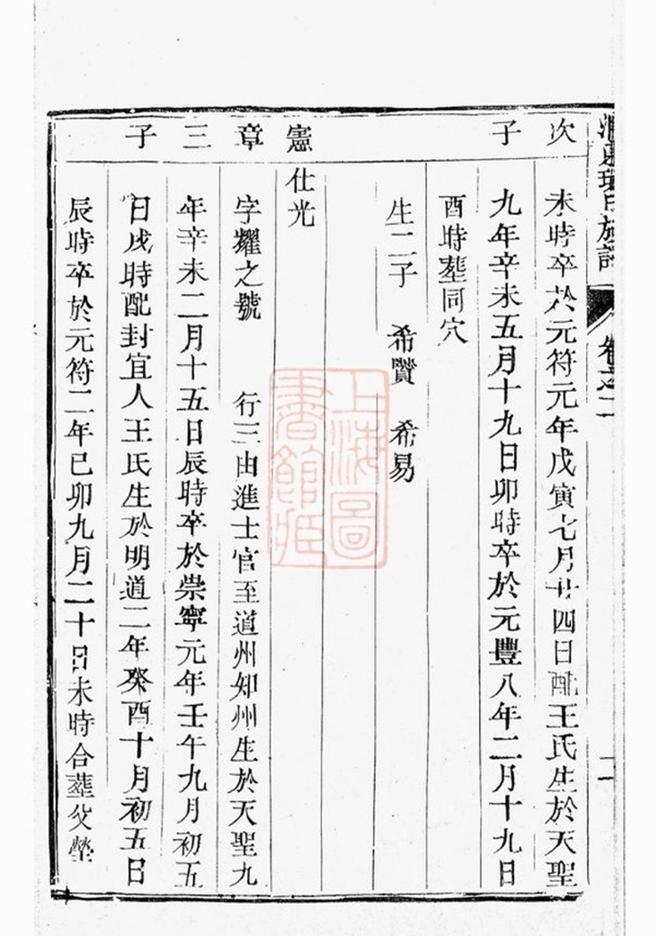 氏族譜 卷之二
次子
未時卒於元符元年戊寅七月廿四日配王氏生於天聖
九年辛未五月十九日卯時卒於元豐八年二月十九日
酉時塟同穴
生二子 希賢 希易
憲章三子
仕光
字耀之號 行三由進士官至道州知州生於天聖九
年辛未二月十五日辰時卒於崇寧元年壬午九月初五
日戌時配封宜人王氏生於明道二年癸酉十月初五日
辰時卒於元符二年己卯九月二十日未時合塟父塋
上海圖
書館藏